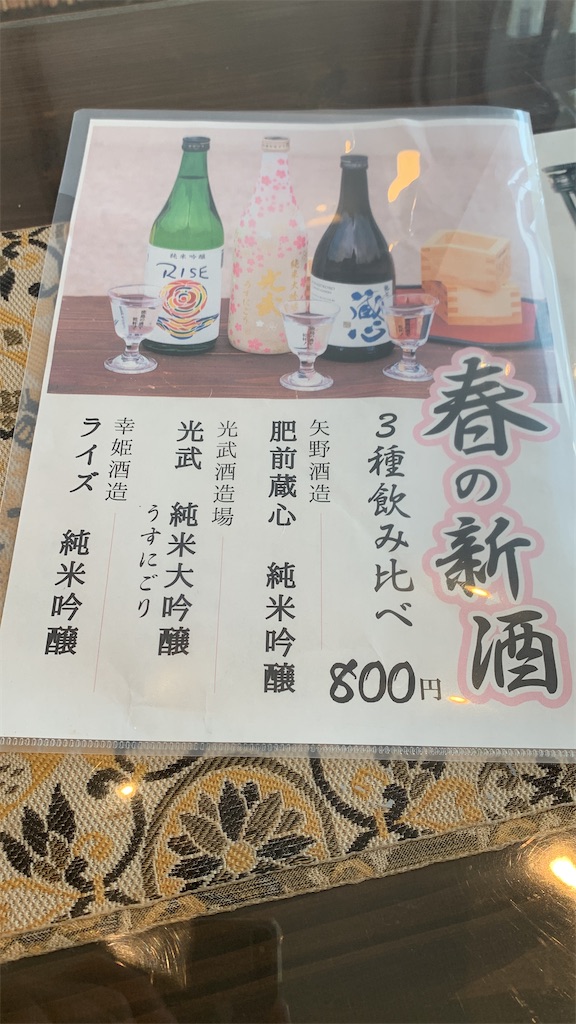 春の新酒
3種飲み比べ
800円
矢野酒造
肥前蔵心 純米吟醸
光武酒造場
光武 純米大吟醸
うすにごり
幸姫酒造
ライズ 純米吟醸
純米吟醸
RISE
光武
蔵心